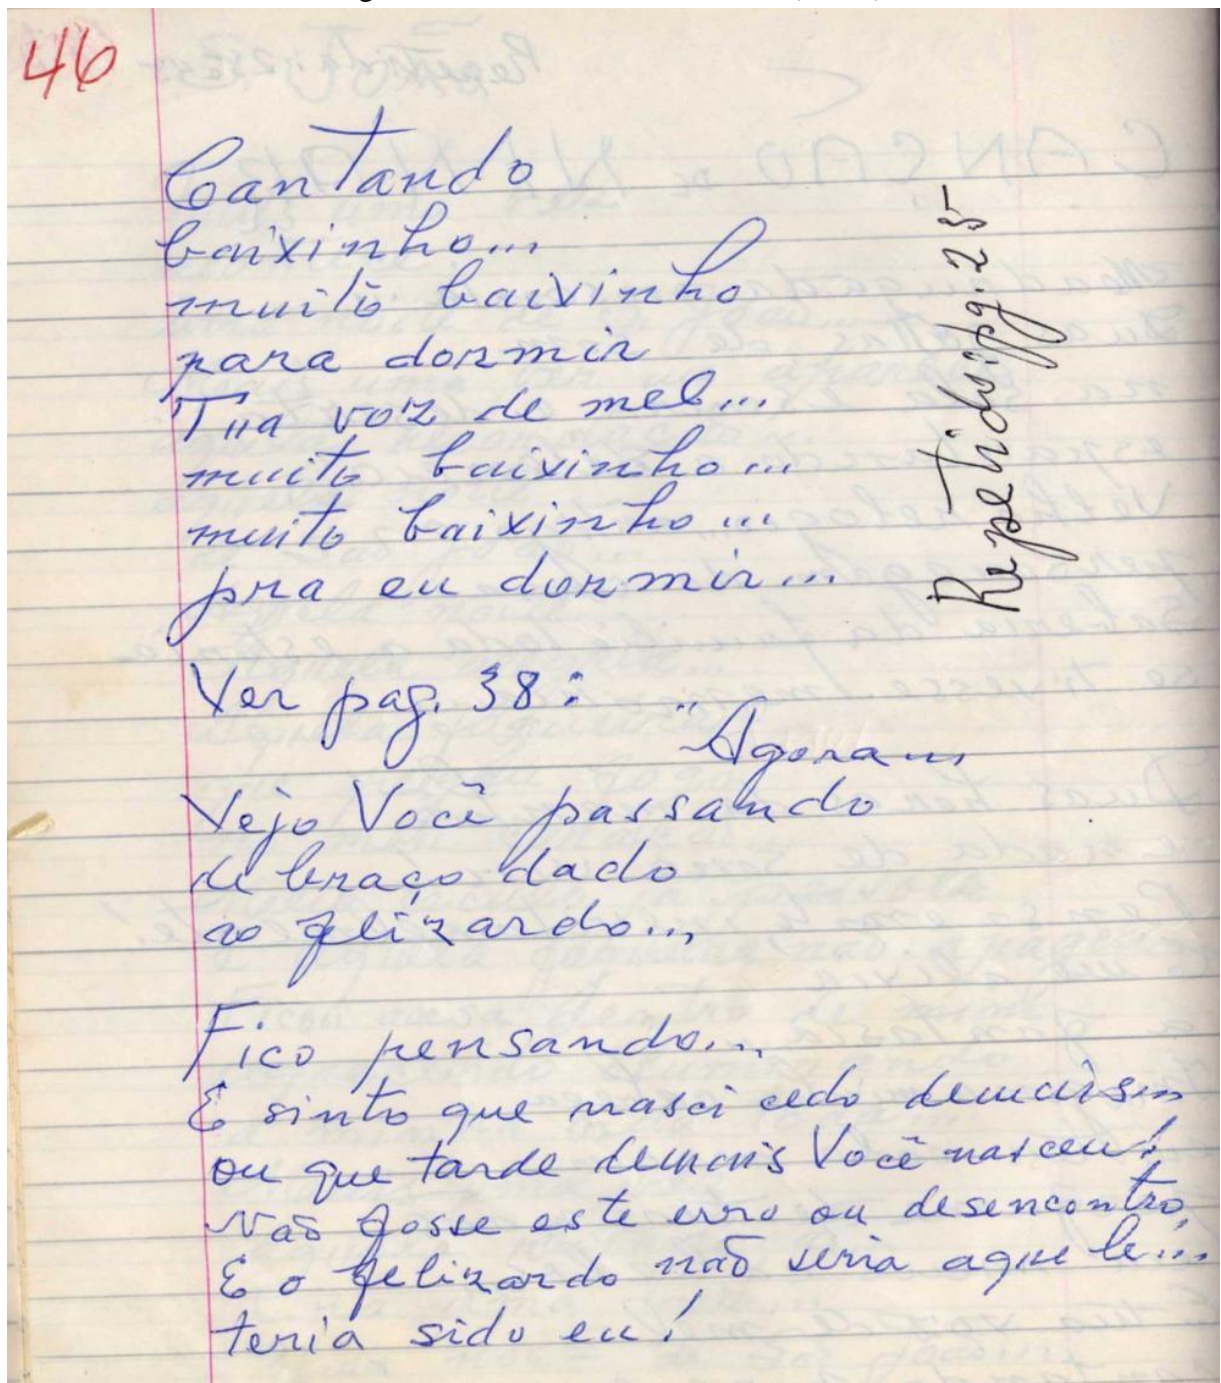 46
Cantando
baixinho...
muito baixinho
para dormir
Tua voz de mel...
muito baixinho...
muito baixinho...
pra eu dormir...
Repetido: pg. 25
Ver pag. 38:
"Agora...
Vejo Você passando
de braço dado
ao felizardo...
Fico pensando...
E sinto que nasci cedo demais...
ou que tarde demais Você nasceu!
Não fosse este erro ou desencontro,
E o felizardo não seria aquele...
teria sido eu!